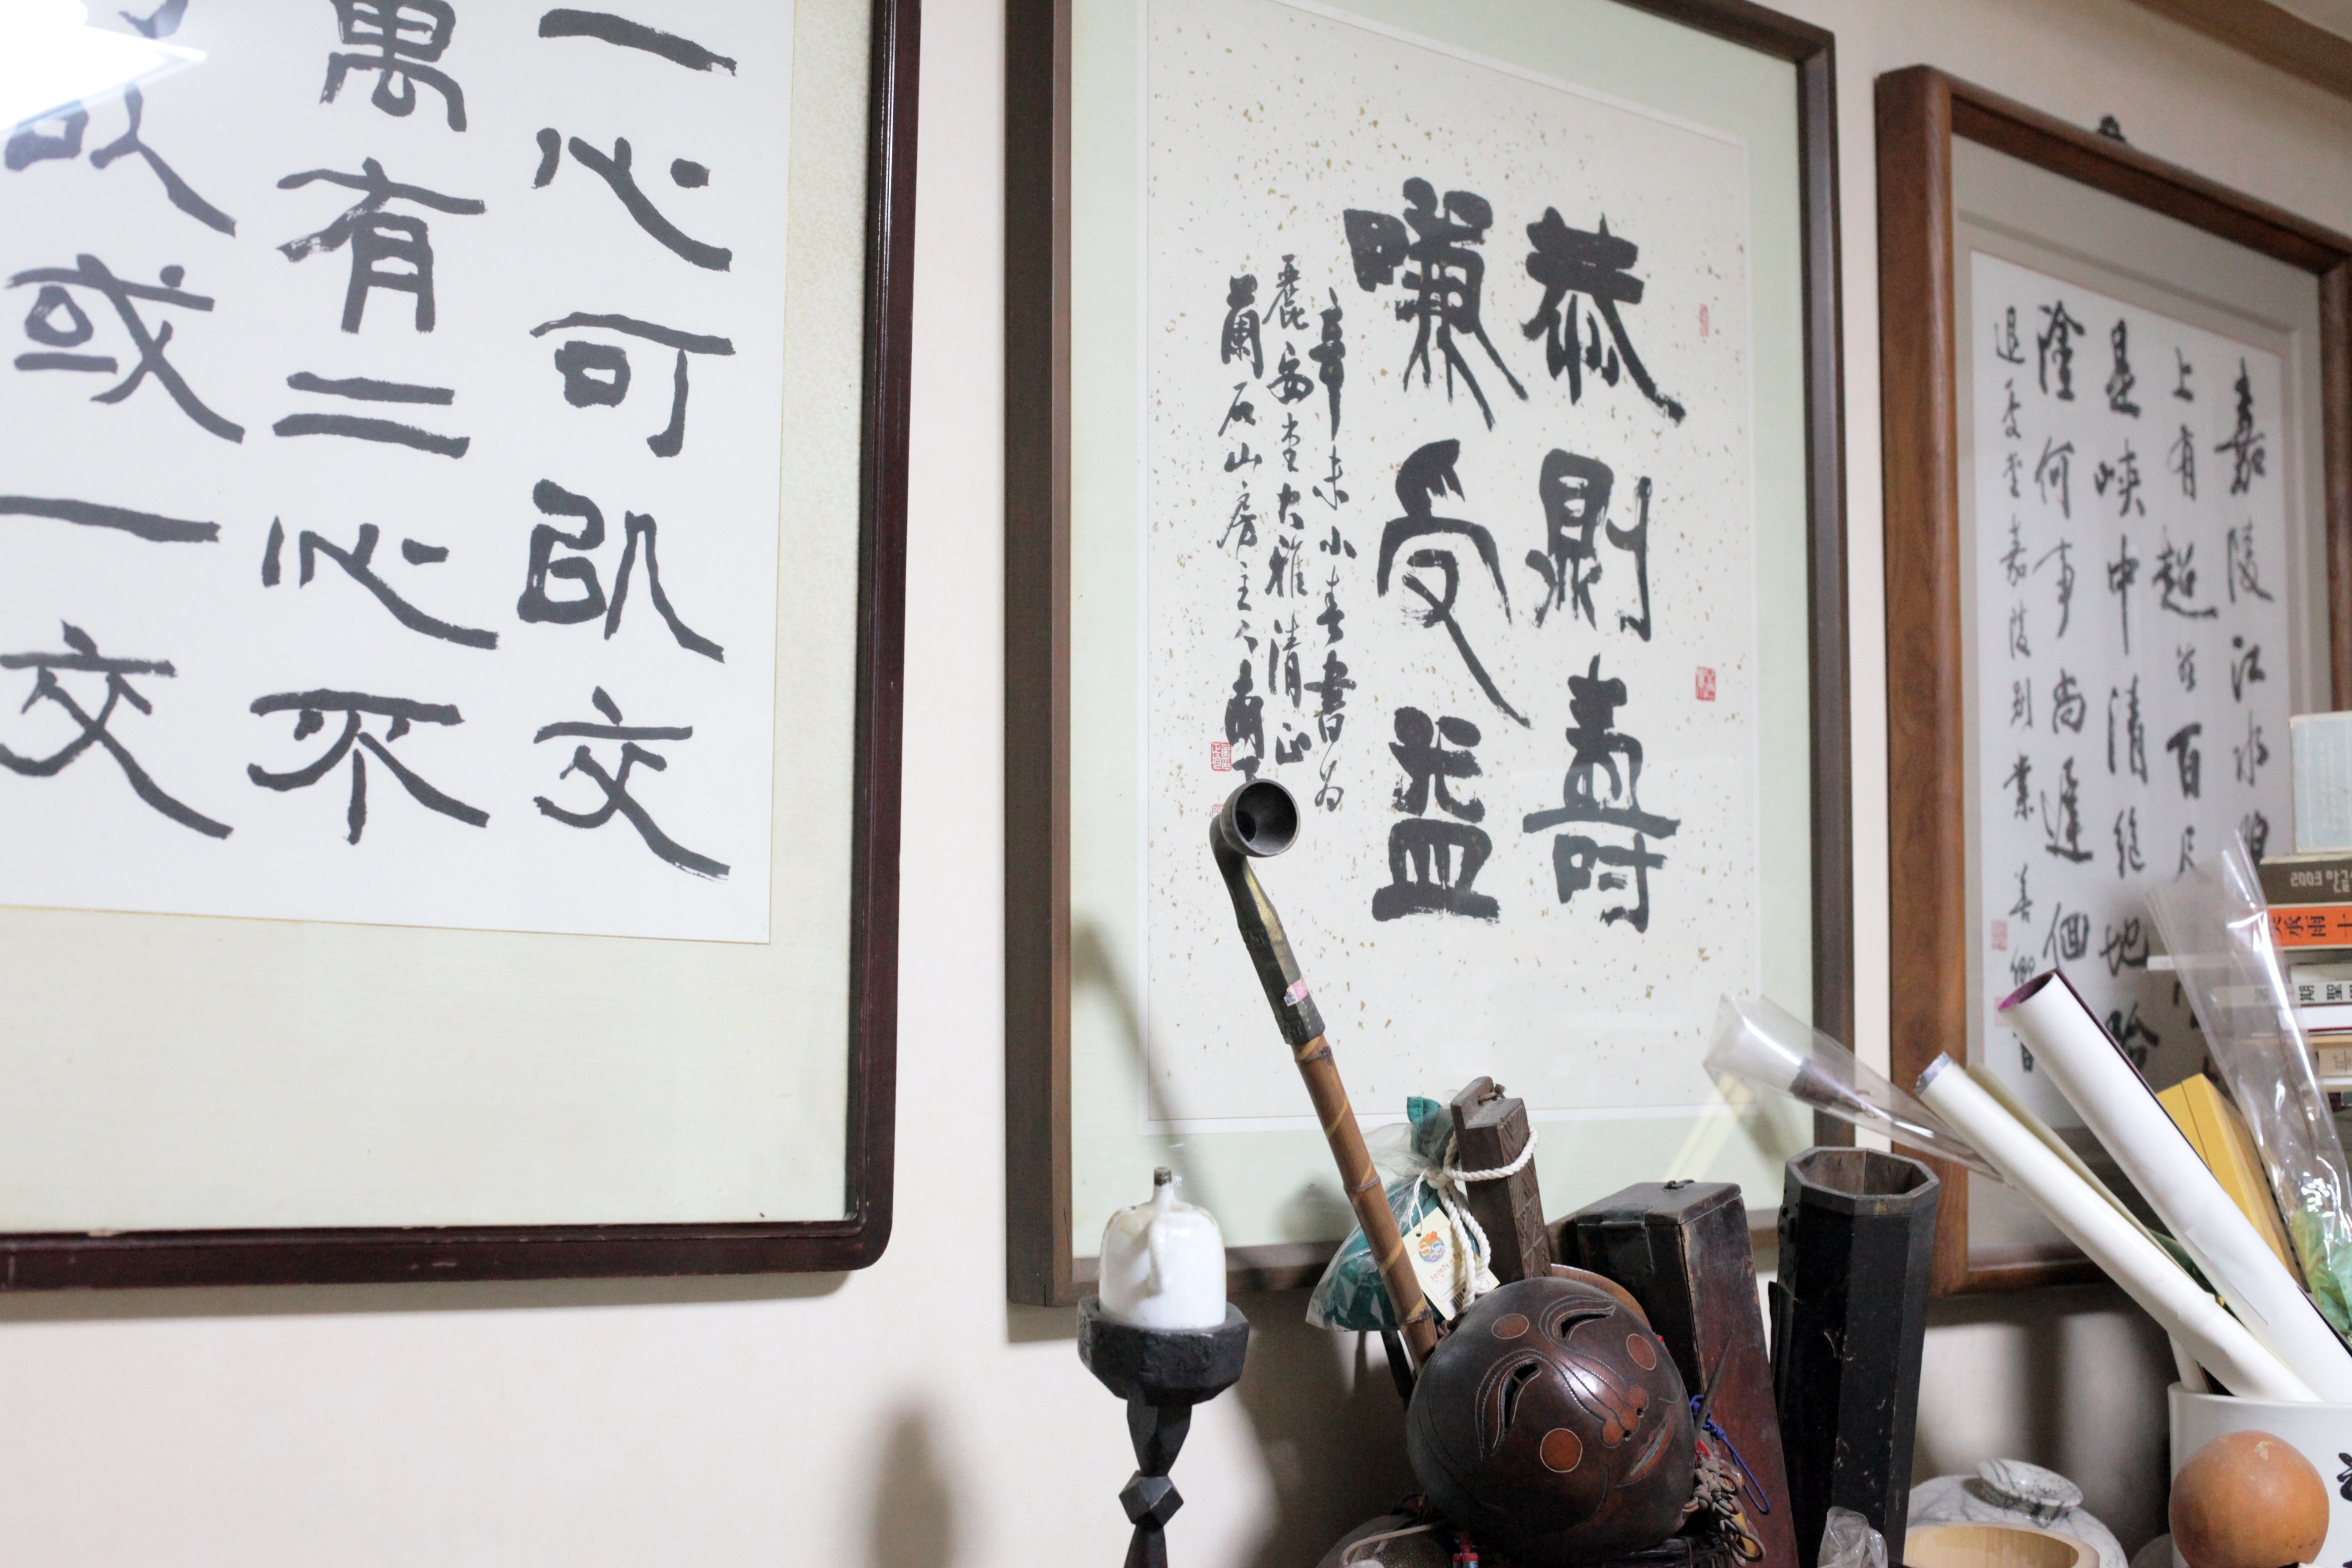 一心可以交
萬有二心不
以或一交
恭則壽
嗛受益
辛未小春書為
麗安堂大雅清正
蘭石山房主人
嘉陵江水碧
上有超然百尺
是峽中清絶地險
塗何事尚遲徊
退憂堂嘉陵別業
2003